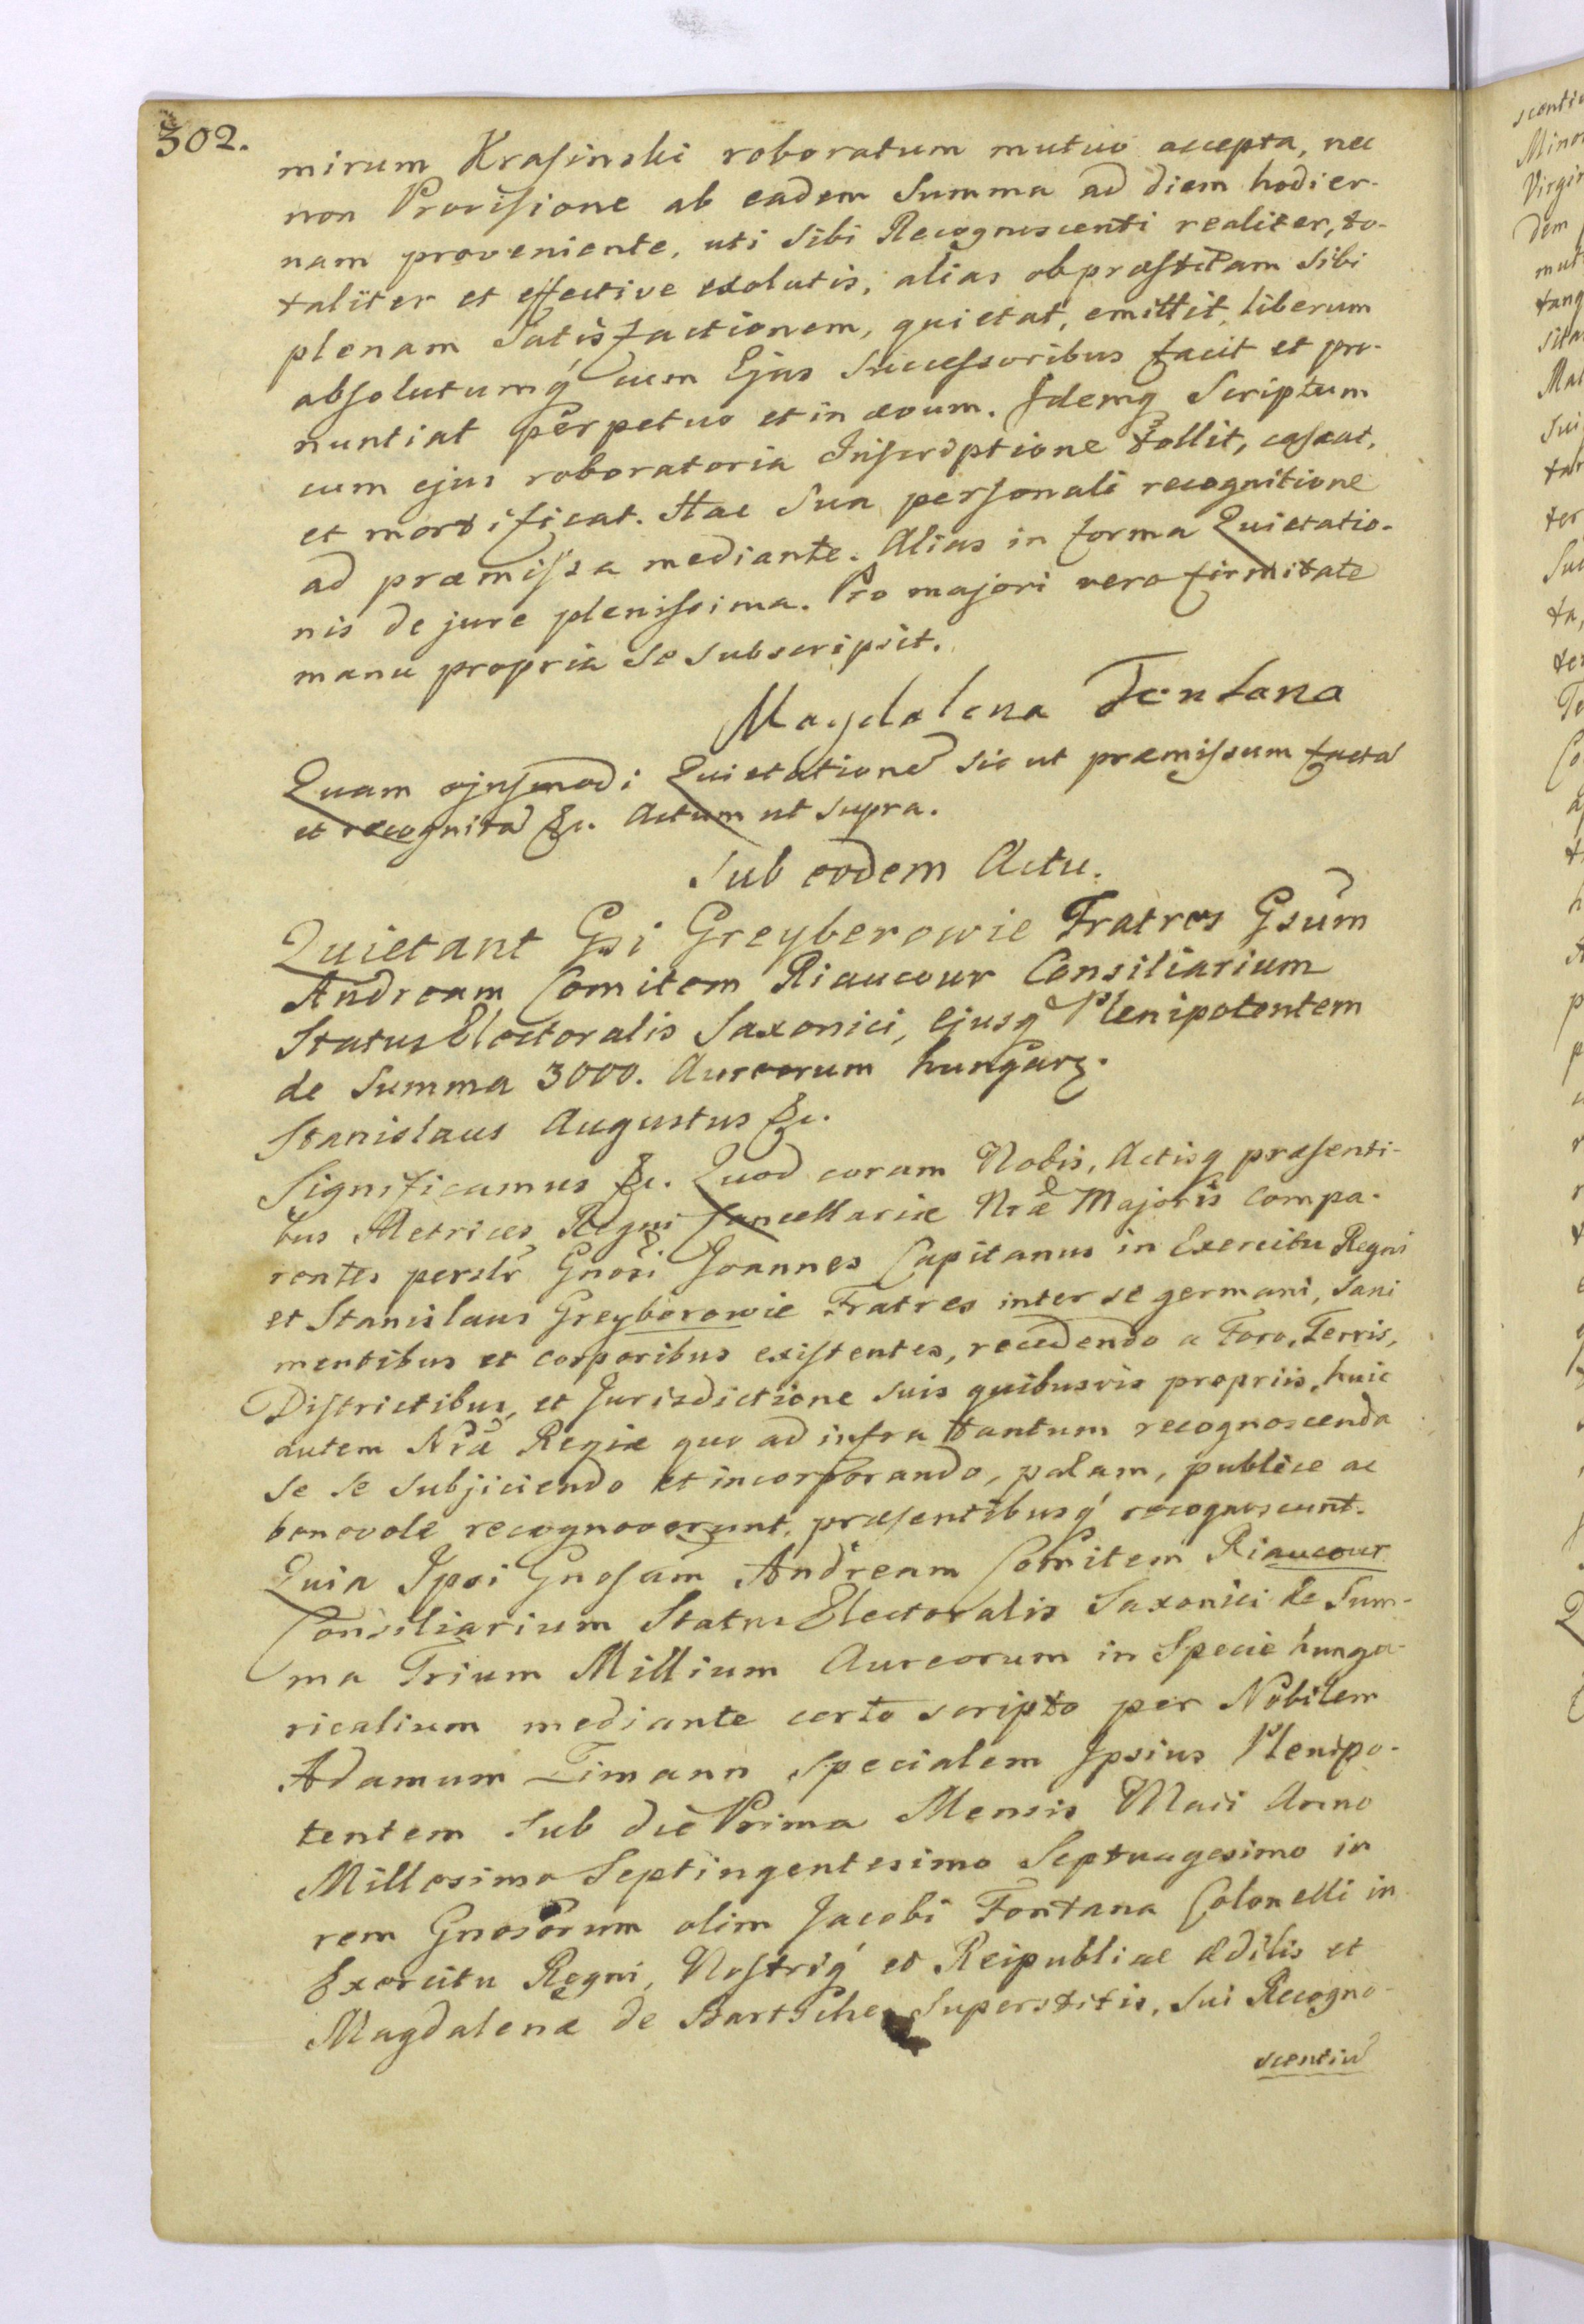 302.
mirum Krasinski roboratum mutuo accepta, nec
non Provisione ab eadem Summa ad diem hodier-
nam proveniente, uti Sibi Recognoscenti realiter, to-
taliter et effective exolutis, alias ob præstitam Sibi
plenam Satisfactionem, quietat, emittit, liberum
absolutumq́ cum Ejus Successoribus facit et pro-
nuntiat perpetuo et in ævum. Idemq Scriptum
cum ejus roboratoria Inscriptione tollit, cassat,
et mortificat. Hac Sua personali recognitione
ad præmissa mediante. Alias in forma Quietatio-
nis de jure plenissima. Pro majori vero firmitate
manu propria se subscripsit.
Magdalena Fontana
Quam ejusmodi Quietatione sic ut præmissum facta
et recognita &c. Actum ut supra.
Sub eodem Actu.
Quietant Gsi Greyberowie Fratres Gsum
Andream Comitem Riaucour Consiliarium
Status Electoralis Saxonici, Ejusq Plenipotentem
de Summa 3000. Aureorum hungarz.
Stanislaus Augustus &c.
Significamus &c. Quod coram Nobis, Actisq præsenti-
bus Metrices Regni Cancellariæ Nræ Majoris Compa-
rentes perslr Gnosi Joannes Capitanus in Exercitu Regni
et Stanislaus Greyberowie Fratres inter se germani, sani
mentibus et corporibus existentes, recedendo a Foro, Terris,
Districtibus, et Jurisdictione suis quibusvis propriis, huic
autem Nræ Regiæ quo ad infra tantum recognoscenda
se se subjiciendo et incorporando, palam, publice ac
benevole recognoverunt, præsentibusq́ recognoscunt.
Quia Ipsi Gnosum Andream Comitem Riaucour
Consiliarium Status Electoralis Saxonici de Sum-
ma Trium Millium Aureorum in Specie hunga-
ricalium mediante certo scripto per Nobilem
Adamum Timann specialem Ipsius Plenipo-
tentem sub die Prima Mensis Maii Anno
Millesimo Septingentesimo Septuagesimo in
rem Gnosorum olim Jacobi Fontana Colonelli in
Exercitu Regni, Nostriq́ et Reipublicæ Ædilis et
Magdalenæ de Bartsche Superstitis, sui Recogno-
scentiu